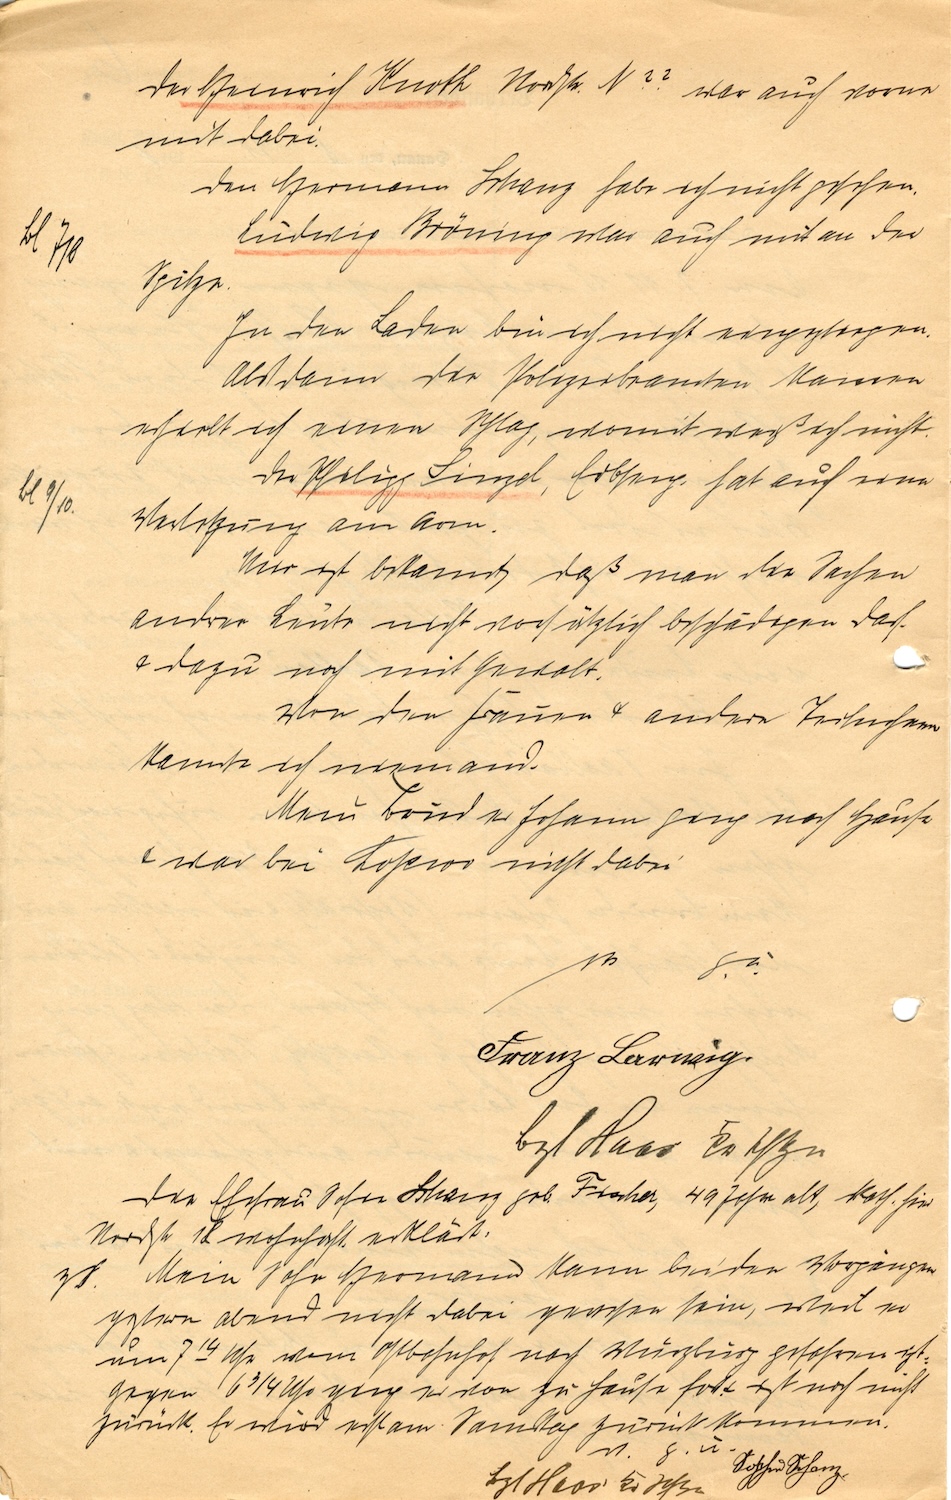 Der Heinrich Knoth Nordstr. N 22 war auch vorne
mit dabei.
Den Hermann Schanz habe ich nicht gesehen.
Bl 7/8
Ludwig Bröning war auch mit an der
Spitze.
In den Laden bin ich nicht eingestiegen.
Als dann die Polizeibeamten kamen
erhielt ich einen Schlag, womit weiß ich nicht.
Bl 9/10.
Der Philipp Linzel, Erbseng. hat auch eine
Verletzung am Arm.
Mir ist bekannt, daß man die Sachen
andrer Leute nicht vorsätzlich beschädigen darf
& dazu noch mit Gewalt.
Von den Frauen & andere Teilnehmer
kannte ich niemand.
Mein Bruder Johann ging nach Hause
& war bei nicht dabei
v. g. u.
Franz Larwig.
bgl Haas
Die Ehefrau Sofie Schanz geb. Fischer, 49 Jahre alt, kath. hier
Nordstr 18 wohnhaft erklärt:
z S. Mein Sohn Hermann kann bei den Vorgängen
gestern abend nicht dabei gewesen sein, weil er
um 7 14 Uhr vom Ostbahnhof nach Würzburg gefahren ist.
Gegen 6 3/4 Uhr ging er von zu Hause fort & ist noch nicht
zurück. Er wird erst am Samstag zurück kommen.
v. g. u.
bgl Haas
Sophie Schanz.